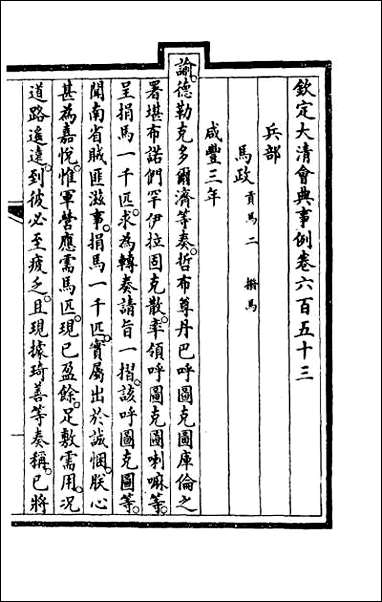 欽定大清會典事例卷六百五十三
兵部
馬政 貢馬二 㨂馬
咸豐三年
諭。德勒克多爾濟等奏。哲布尊丹巴呼圖克圖庫倫之
署堪布諾們罕伊拉固克散。率領呼圖克圖喇嘛等。
呈捐馬一千匹。求為轉奏請旨一摺。該呼圖克圖等。
聞南省賊匪滋事。捐馬一千匹。實屬出於誠悃。朕心
甚為嘉悅。惟軍營應需馬匹。現已盈餘。足敷需用。況
道路遙遠。到彼必至疲乏。且現據琦善等奏稱。已將